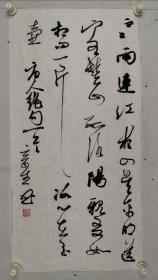 寒雨連江夜入吳平明送
客楚山孤洛陽親友如
相问一片冰心在玉
壺 唐人絕句一首